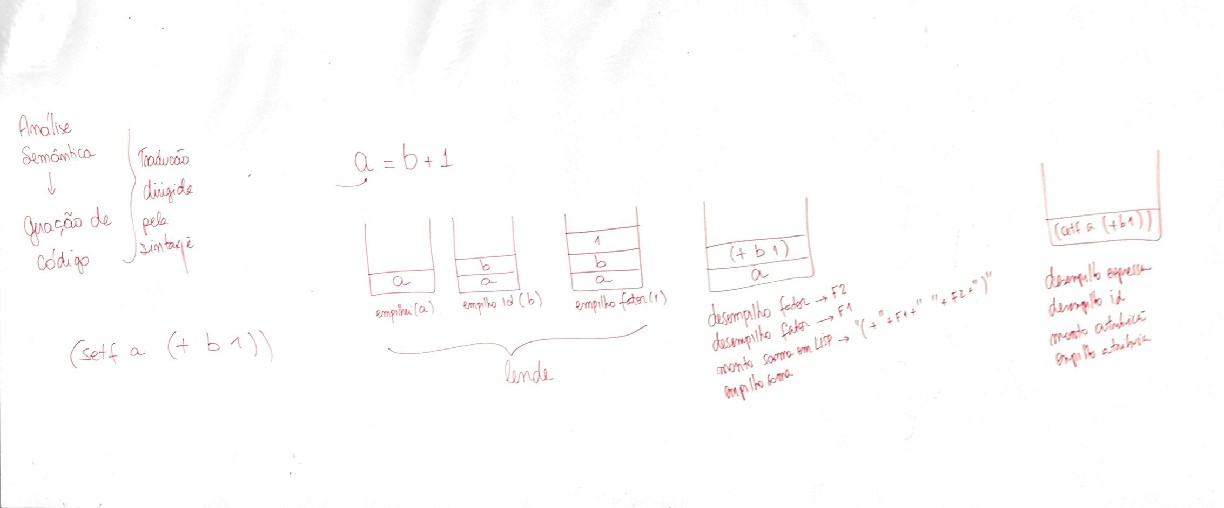 Análise
Semântica
↓
geração de
código
Tradução
dirigida
pela
sintaxe
(setf a (+ b 1))
a = b + 1
a
empilha (a)
b
a
empilho id (b)
1
b
a
empilho fator (1)
lendo
(+ b 1)
a
desempilho fator → F2
desempilho fator → F1
monto soma em LISP → "(+" + F1 + " " + F2 + ")"
empilho soma
(setf a (+ b 1))
desempilho
desempilho id
monto
empilho